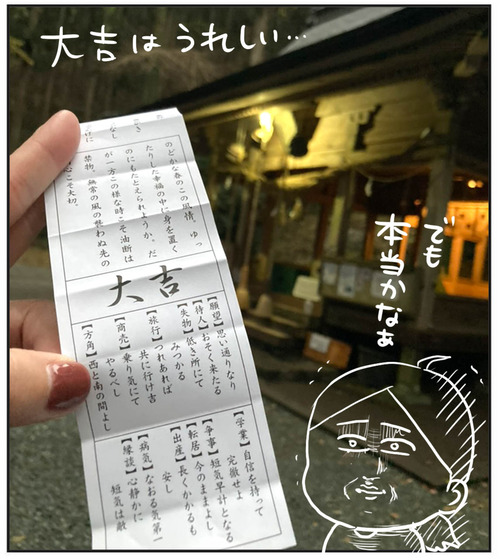 大吉はうれしい…
でも
本当かなぁ
のどかな春のこの風情、ゆっ
たりした幸福の中に身を置く
のにもたとえられようか。だ
が一方この様な時こそ油断は
禁物、無常の風の襲わぬ先の
心こそ大切。
大吉
【願望】思い通りなり
【待人】おそく来たる
【失物】低き所にて
みつかる
【旅行】つれあれば
共に行け吉
【商売】乗り気にて
やるべし
【方角】西と南の間よし
【学業】自信を持って
完徹せよ
【争事】短気早計となる
【転居】今のままよし
【出産】長くかかるも
安し
【病気】なおる気第一
【縁談】心静かに
短気は敵